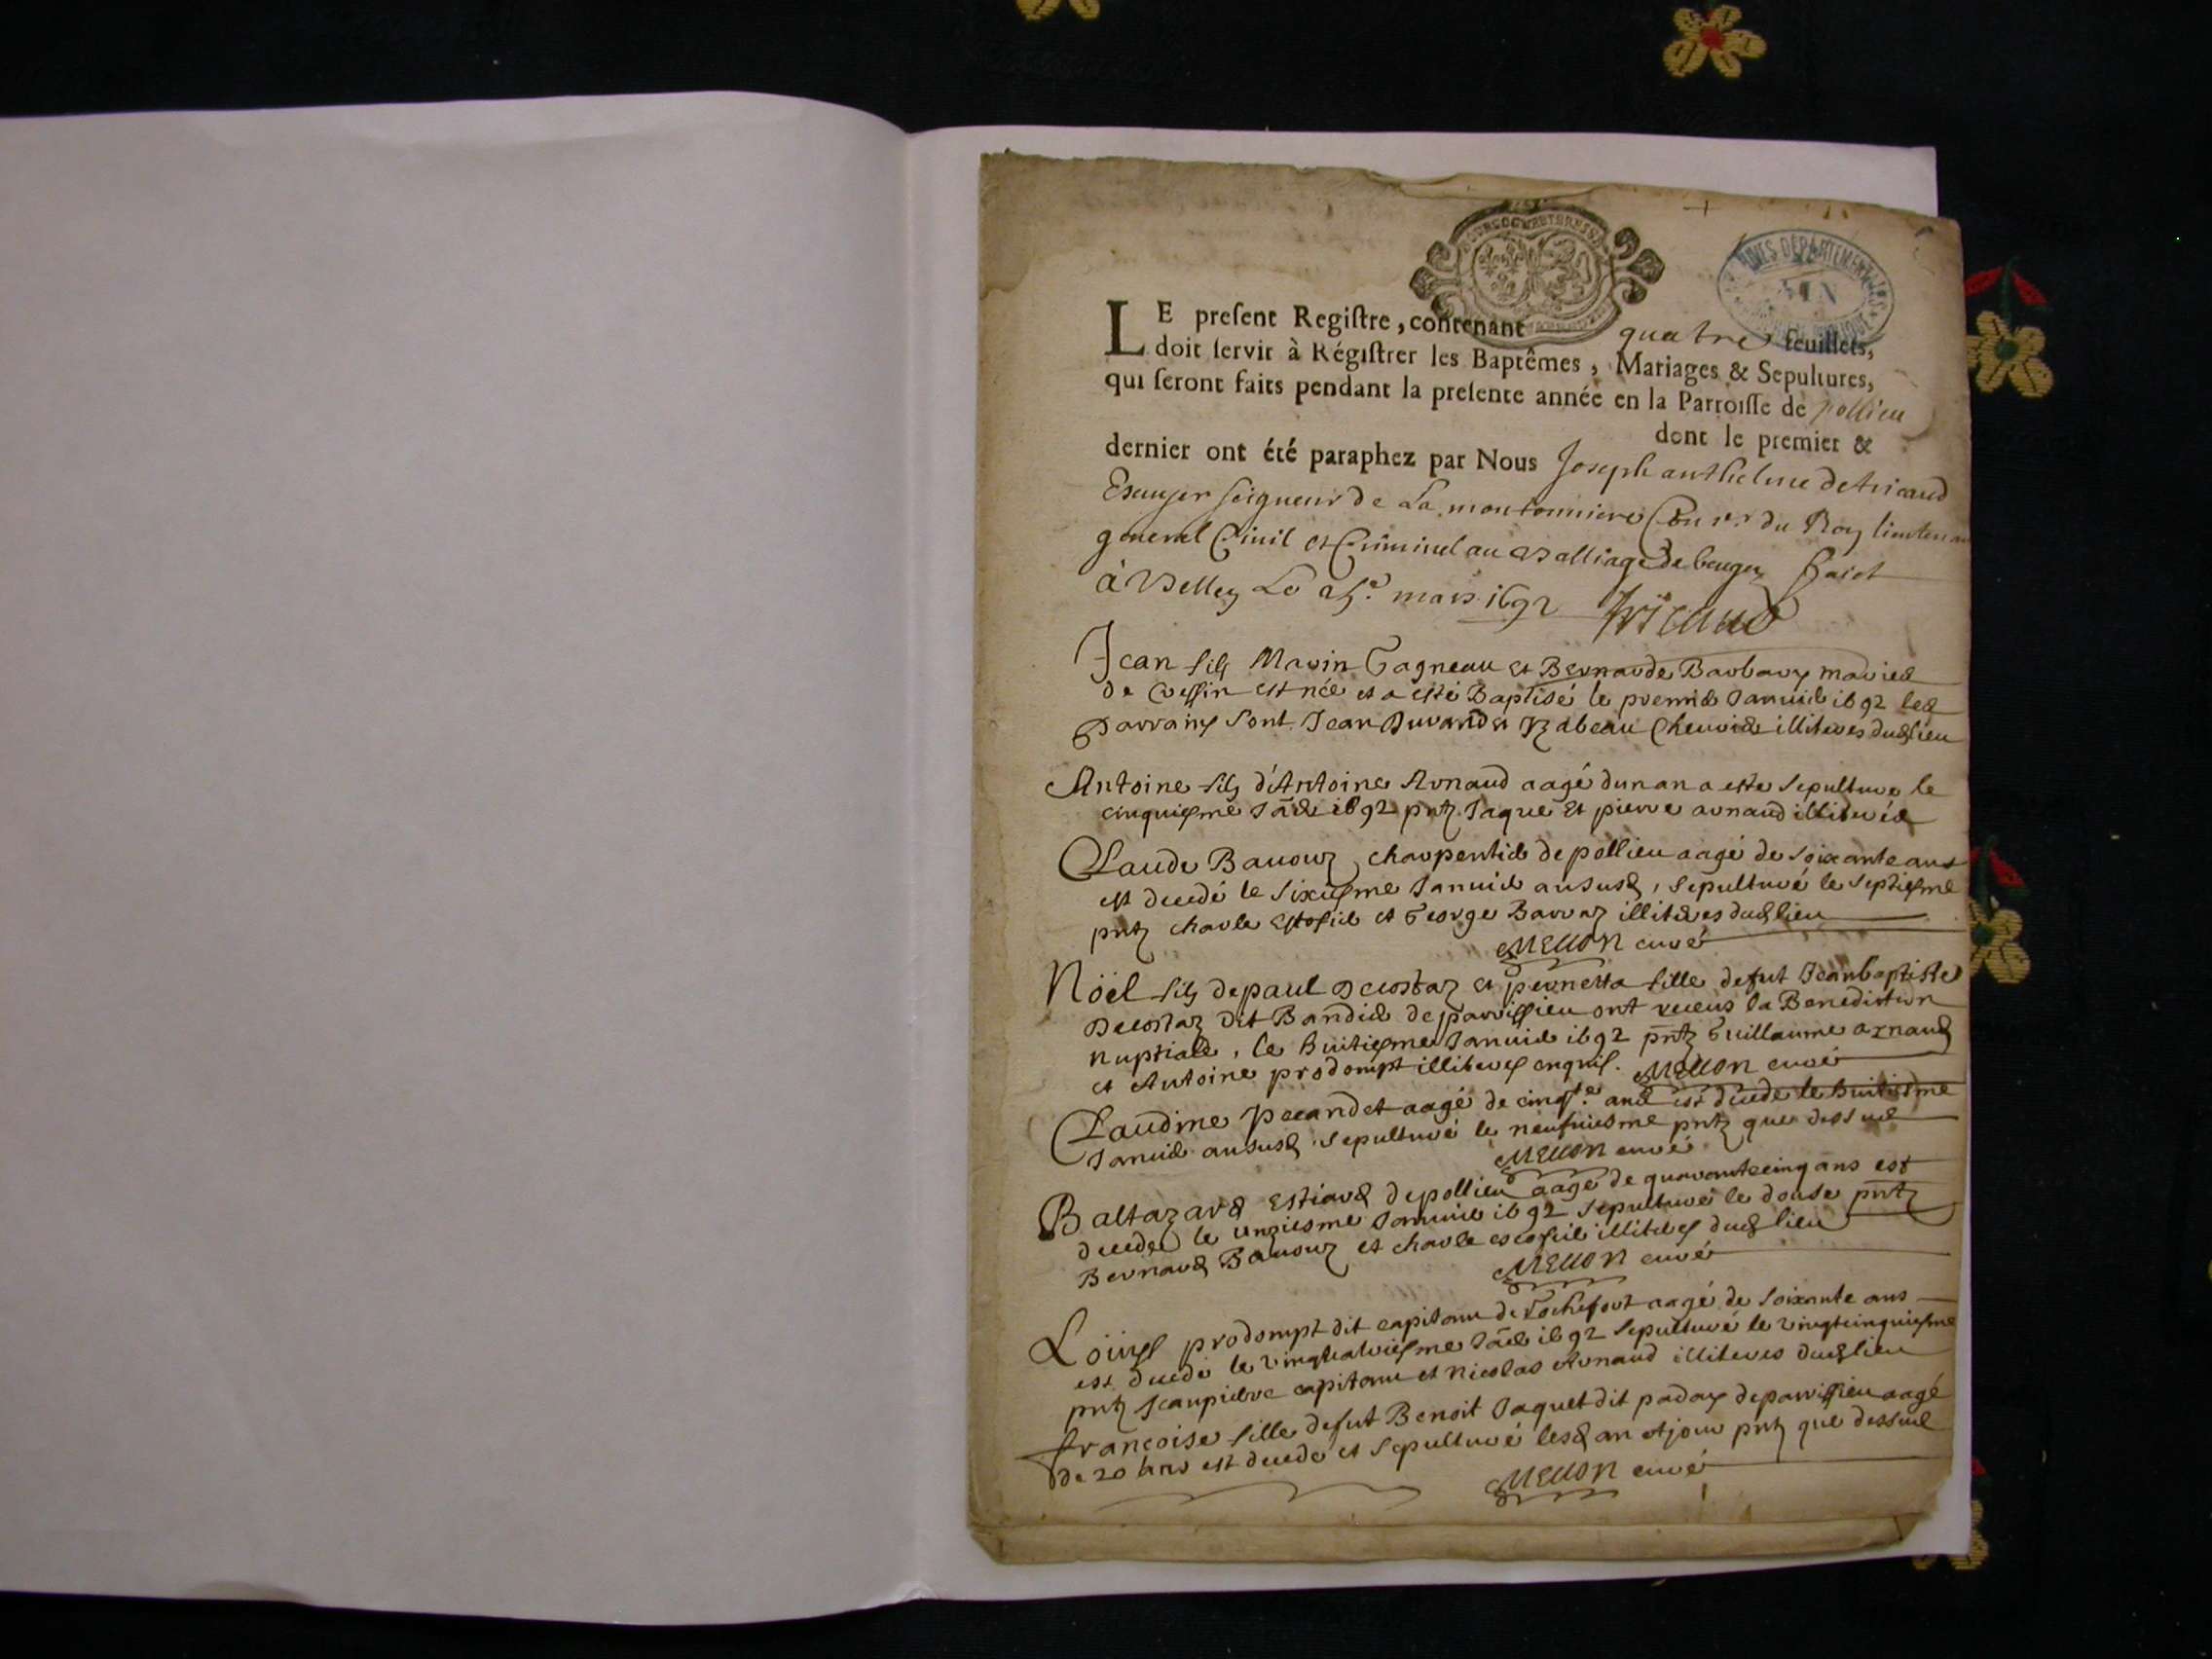 ARCHIVES DÉPARTEMENTALES
AIN
LE present Registre, contenant quatre feuillets,
doit servir à Régistrer les Baptêmes, Mariages & Sepultures,
qui seront faits pendant la presente année en la Parroisse de pollieu
dont le premier &
dernier ont été paraphez par Nous Joseph anthelme de tricaud
Escuyer seigneur de La moutonniere Con.er du Roy lieutenan
general Civil et Criminel au Balliage de beugey fait
à Belley Le mars 1692 Tricaud
Jean fils Marin Gagneau et Bernarde Barbary mariés
de Cressin est née et a esté Baptisé le premier Januier 1692 les
Parrains sont Jean Durand et Izabeau Cheuvier illiteres dud lieu
Antoine fils d'Antoine Arnaud aagé dun an a este sepulture le
cinquiesme 1692 pnts Jaque Et pierre arnaud illiteres
Claude Bauouz charpentier de pollieu aagé de soixante ans
est decedé le sixiesme Januier ansusd, sepulturé le septiesme
pnts charle et George illiteres dud lieu
Mellon curé
Noël fils de paul Decostaz et pernetta fille de fut Jeanbaptiste
Decostaz dit Bandier de parrissieu ont receus la Benediction
nuptiale, le huitiesme Januier 1692 pnts Guillaume arnaud
et Antoine prodompt illiteres enquis. Mellon curé
Claudine Pecandet aagé de cinqte ans est decedé le huitiesme
Januier ansusd sepulturé le neufuiesme pnts que dessus
Mellon curé
Baltazard Estiard de pollieu aagé de quarante cinq ans est
decedé le unziesme Januier 1692 sepulturé le douse pnts
Bernard Bauouz et charle escofier illiteres dud lieu
Mellon curé
Loüys prodompt dit capitanu de Rochefort aagé de soixante ans
est decedé le vingtquatriesme 1692 sepulturé le vingtcinquiesme
pnts Jeanpierre capitanu et Nicolas Arnaud illiteres dud lieu
françoise fille de fut Benoit Jaquet dit paday de parrissieu aagé
de 20 ans est decedé et sepulturé lesd an et jour pnts que dessus
Mellon curé